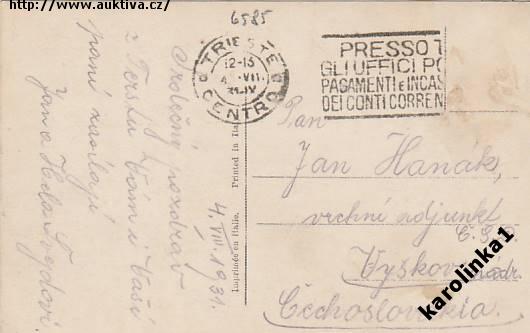 http://www.auktiva.cz/
6585
TRIESTE
12-15
4. VII.
CENTRO
PRESSO T
GLI UFFICI PO
PAGAMENTI e INCAS
DEI CONTI CORREN
Srdečný pozdrav
z Terstu Vám i Vaší
paní zasílají
Jan a
4. VII. 1931.
Printed in Ita
Imprimée en Italie.
Pan
Jan Hanák,
vrchní adjunkt
Č.S.D.
Vyškov
Čechoslovakia.
karolinka1